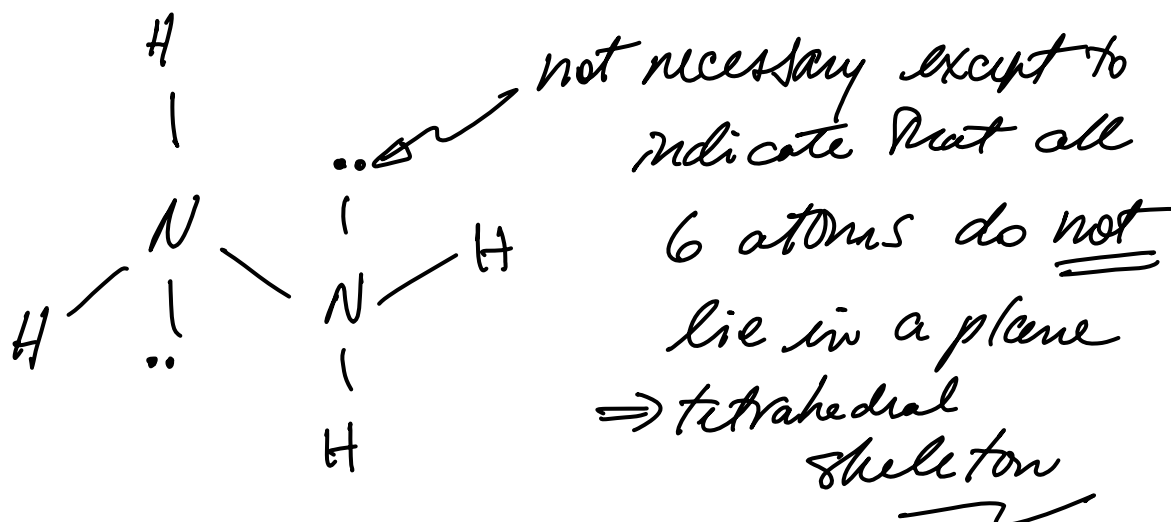 H
not necessary except to
indicate that all
N
H
6 atoms do not
N
H
lie in a plane
⇒ tetrahedral
H
skeleton